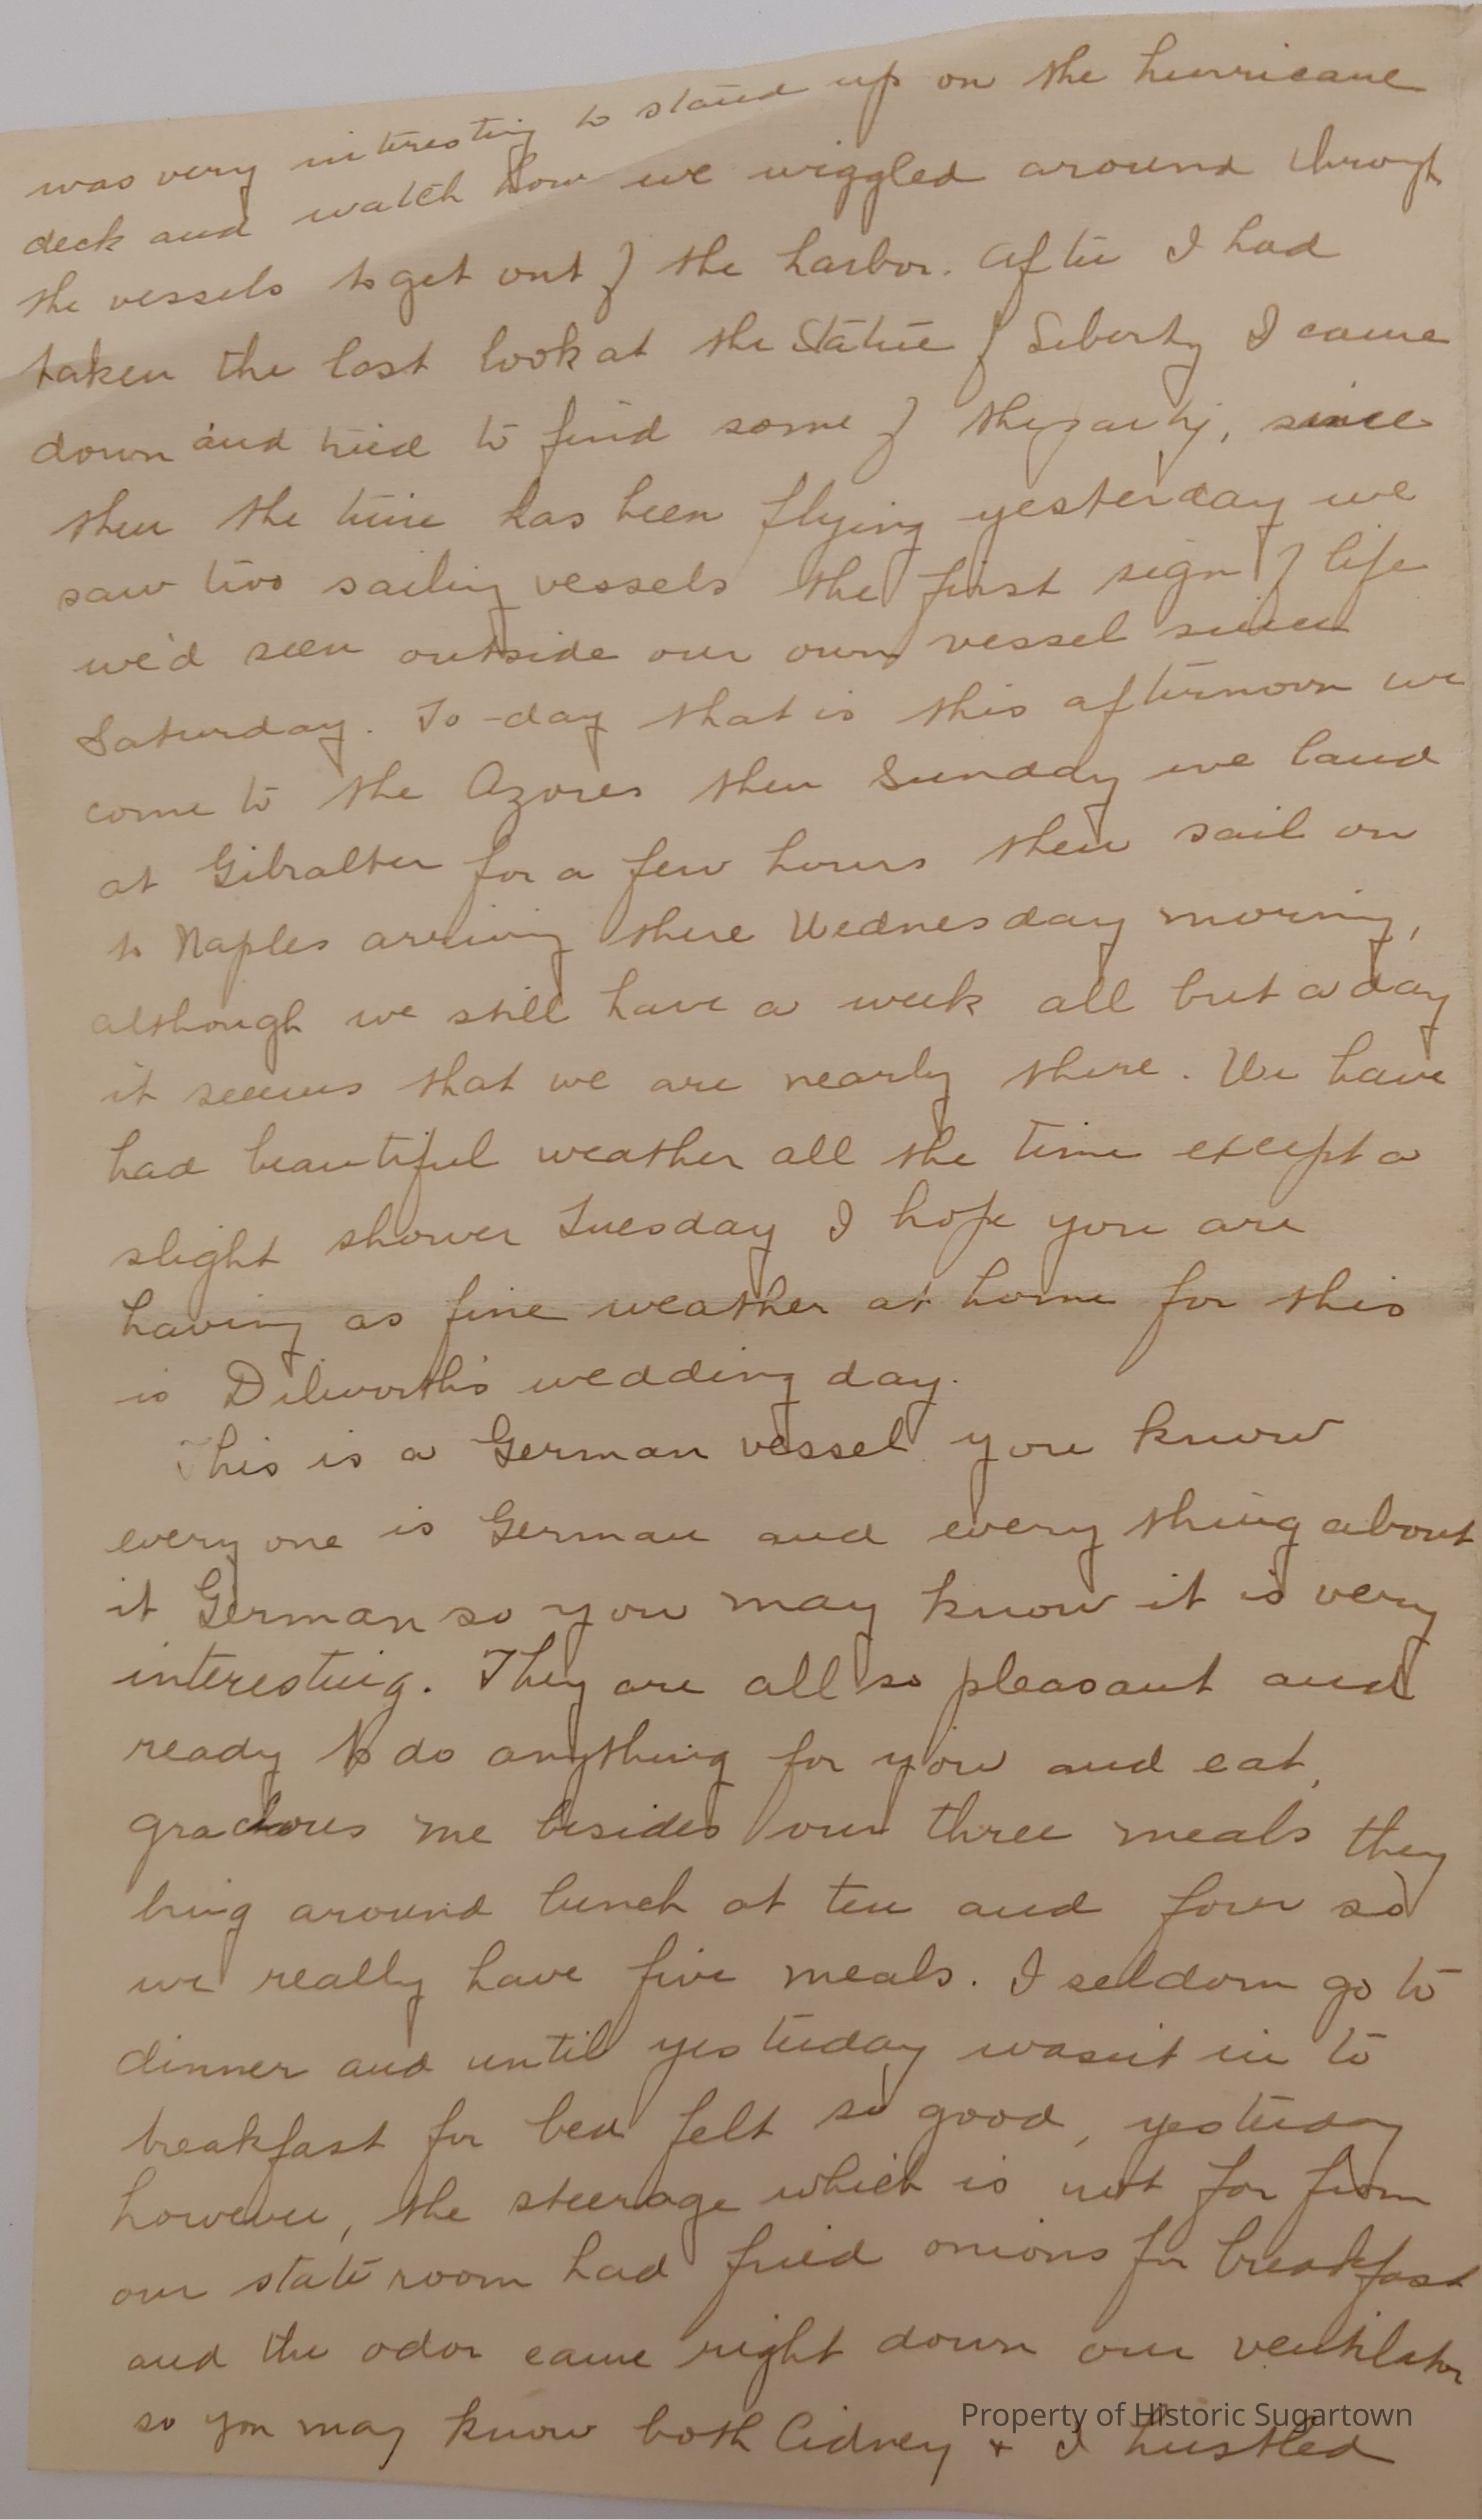 was very interesting to stand up on the hurricane
deck and watch how we wiggled around through
the vessels to get out of the harbor. After I had
taken the last look at the Statue of Liberty I came
down and tried to find some of the party, since
then the time has been flying yesterday we
saw two sailing vessels the first sign of life
we'd seen outside our own vessel since
Saturday. To-day that is this afternoon we
come to the Azores then Sunday we land
at Gibralter for a few hours then sail on
to Naples arriving there Wednesday morning,
although we still have a week all but a day
it seems that we are nearly there. We have
had beautiful weather all the time except a
slight shower Tuesday I hope you are
having as fine weather at home for this
is Dilworth's wedding day.
This is a German vessel you know
every one is German and every thing about
it German so you may know it is very
interesting. They are all so pleasant and
ready to do anything for you and eat,
gracious me besides our three meals they
bring around lunch at ten and four so
we really have five meals. I seldom go to
dinner and until yesterday wasn't in to
breakfast for bed felt so good, yesterday
however, the steerage which is not far from
our state room had fried onions for breakfast
and the odor came right down our ventilator
so you may know both Cidney + I hustled
Property of Historic Sugartown